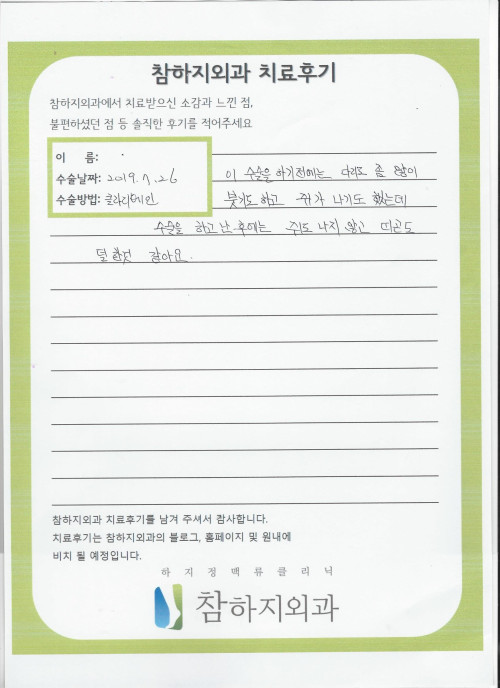 참하지외과 치료후기
참하지외과에서 치료받으신 소감과 느낀 점,
불편하셨던 점 등 솔직한 후기를 적어주세요
이 름:
수술날짜: 2019. 7. 26
수술방법: 클라리베인
이 수술을 하기전에는 다리도 좀 많이
붓기도하고 쥐가 나기도 했는데
수술을 하고 난 후에는 쥐도 나지 않고 피곤도
덜 한것 같아요.
참하지외과 치료후기를 남겨 주셔서 감사합니다.
치료후기는 참하지외과의 블로그, 홈페이지 및 원내에
비치 될 예정입니다.
하지정맥류클리닉
참하지외과